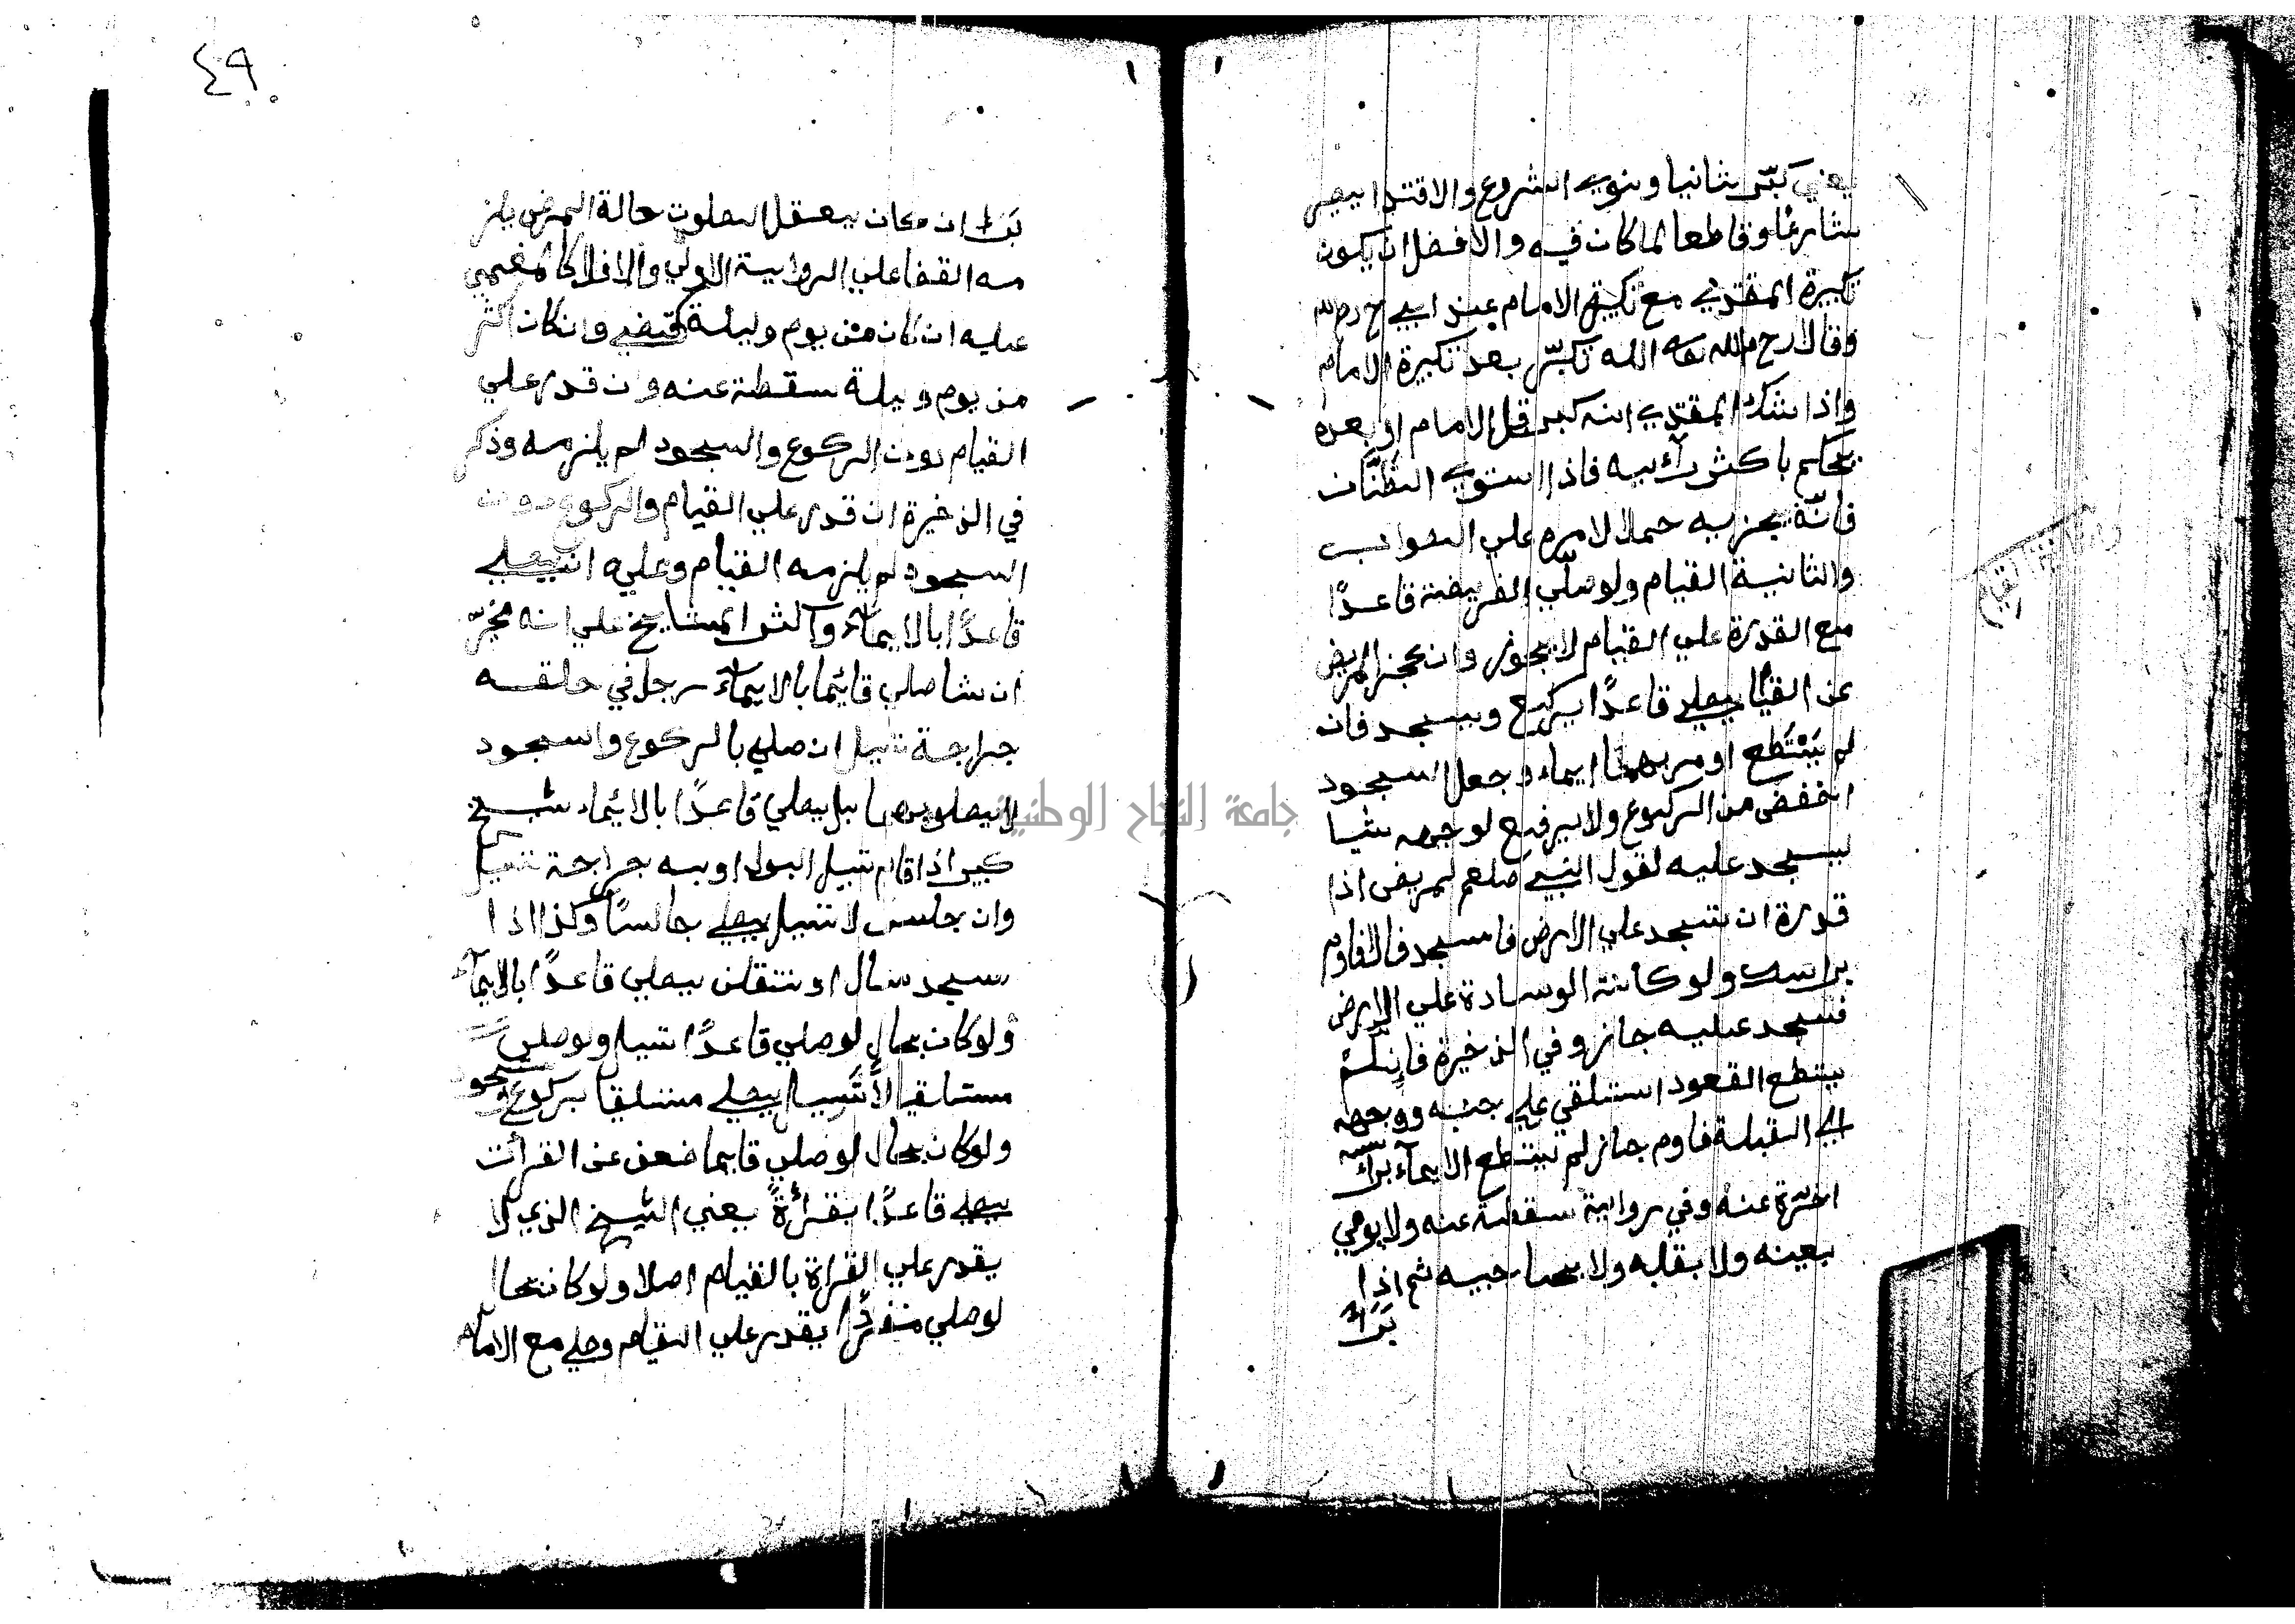 يعني كبّر ثانيا وينوي الشروع والاقتدا يصير
شارعًا وقاطعا لما كان فيه والافضل ان يكون
تكبيرة المقتدي مع تكبيرة الامام عند ابي ح رحم الله
وقالا رحمهما الله تكبّر بعد تكبيرة الامام
واذا شك المقتدي انه كبر قبل الامام او بعده
يحكم باكثر رأييه فاذا استوي الظنّان
فانّه يجزيه حملا لامره علي الصواب
والثانية القيام ولو صلّي الفريضة قاعدًا
مع القدرة علي القيام لا يجوز وان عجز المريض
عن القيام يصلي قاعدًا يركع ويسجد فان
لم يستطع اومي بهما ايماء وجعل السجود
اخفض من الركوع ولا يرفع لوجهه شيا
ليسجد عليه لقول النبي صلعم لمريض اذا
قدرة ان تسجد علي الارض فاسجد فالا فاوم
براسك ولو كانت الوسادة علي الارض
فسجد عليه جاز وفي الذخيرة فان لم
يستطع القعود استلقي علي جنبه ووجهه
الي القبلة فاوم جاز لم يستطع الايمآء برأسه
اخرة عنه وفي رواية سقطة عنه ولا يومي
بعينه ولا بقلبه ولا بحاجبيه ثم اذا
برأ
واما الثانية القيام
٤٩
برأ ان كان يعقل الصلوت حالة المرض يلز
مه القضا علي الرواية الاولي والا فلا كالمغمي
عليه ان كان من يوم وليلة يقضي وان كان اكثر
من يوم وليلة سقطة عنه وان قدر علي
القيام دون الركوع والسجود لم يلزمه وذكر
في الذخيرة ان قدر علي القيام والركوع دون
السجود لم يلزمه القيام وعليه ان يصلي
قاعدًا بالايمآء واكثر المشايخ علي انه مخيّر
ان شا صلي قائما بالايمآء رجل في حلقه
جراجة تسيل ان صلي بالركوع والسجود
لا يصلو بهما بل يصلي قاعدًا بالائماء شيخ
كبير اذا قام تسيل البول او به جراحة تسيل
وان جلس لا تسيل يصلي جالسًا وكذا اذا
سجد سال او ينتقلن يصلي قاعدًا بالايمآء
ولو كان بحال لو صلي قاعدًا تسيل ولو صلي
مستلقيا لا تسيل يصلي مستلقيا بركوع وسجود
ولو كان بحال لو صلي قايما ضعف عن القرأت
يصلي قاعدًا بقرأةً يعني الشيخ الذي لا
يقدر علي القراة بالقيام اصلا ولو كان بحال
لو صلي منفردًا يقدر علي القيام وصلي مع الامام
جامعة النجاح الوطنية